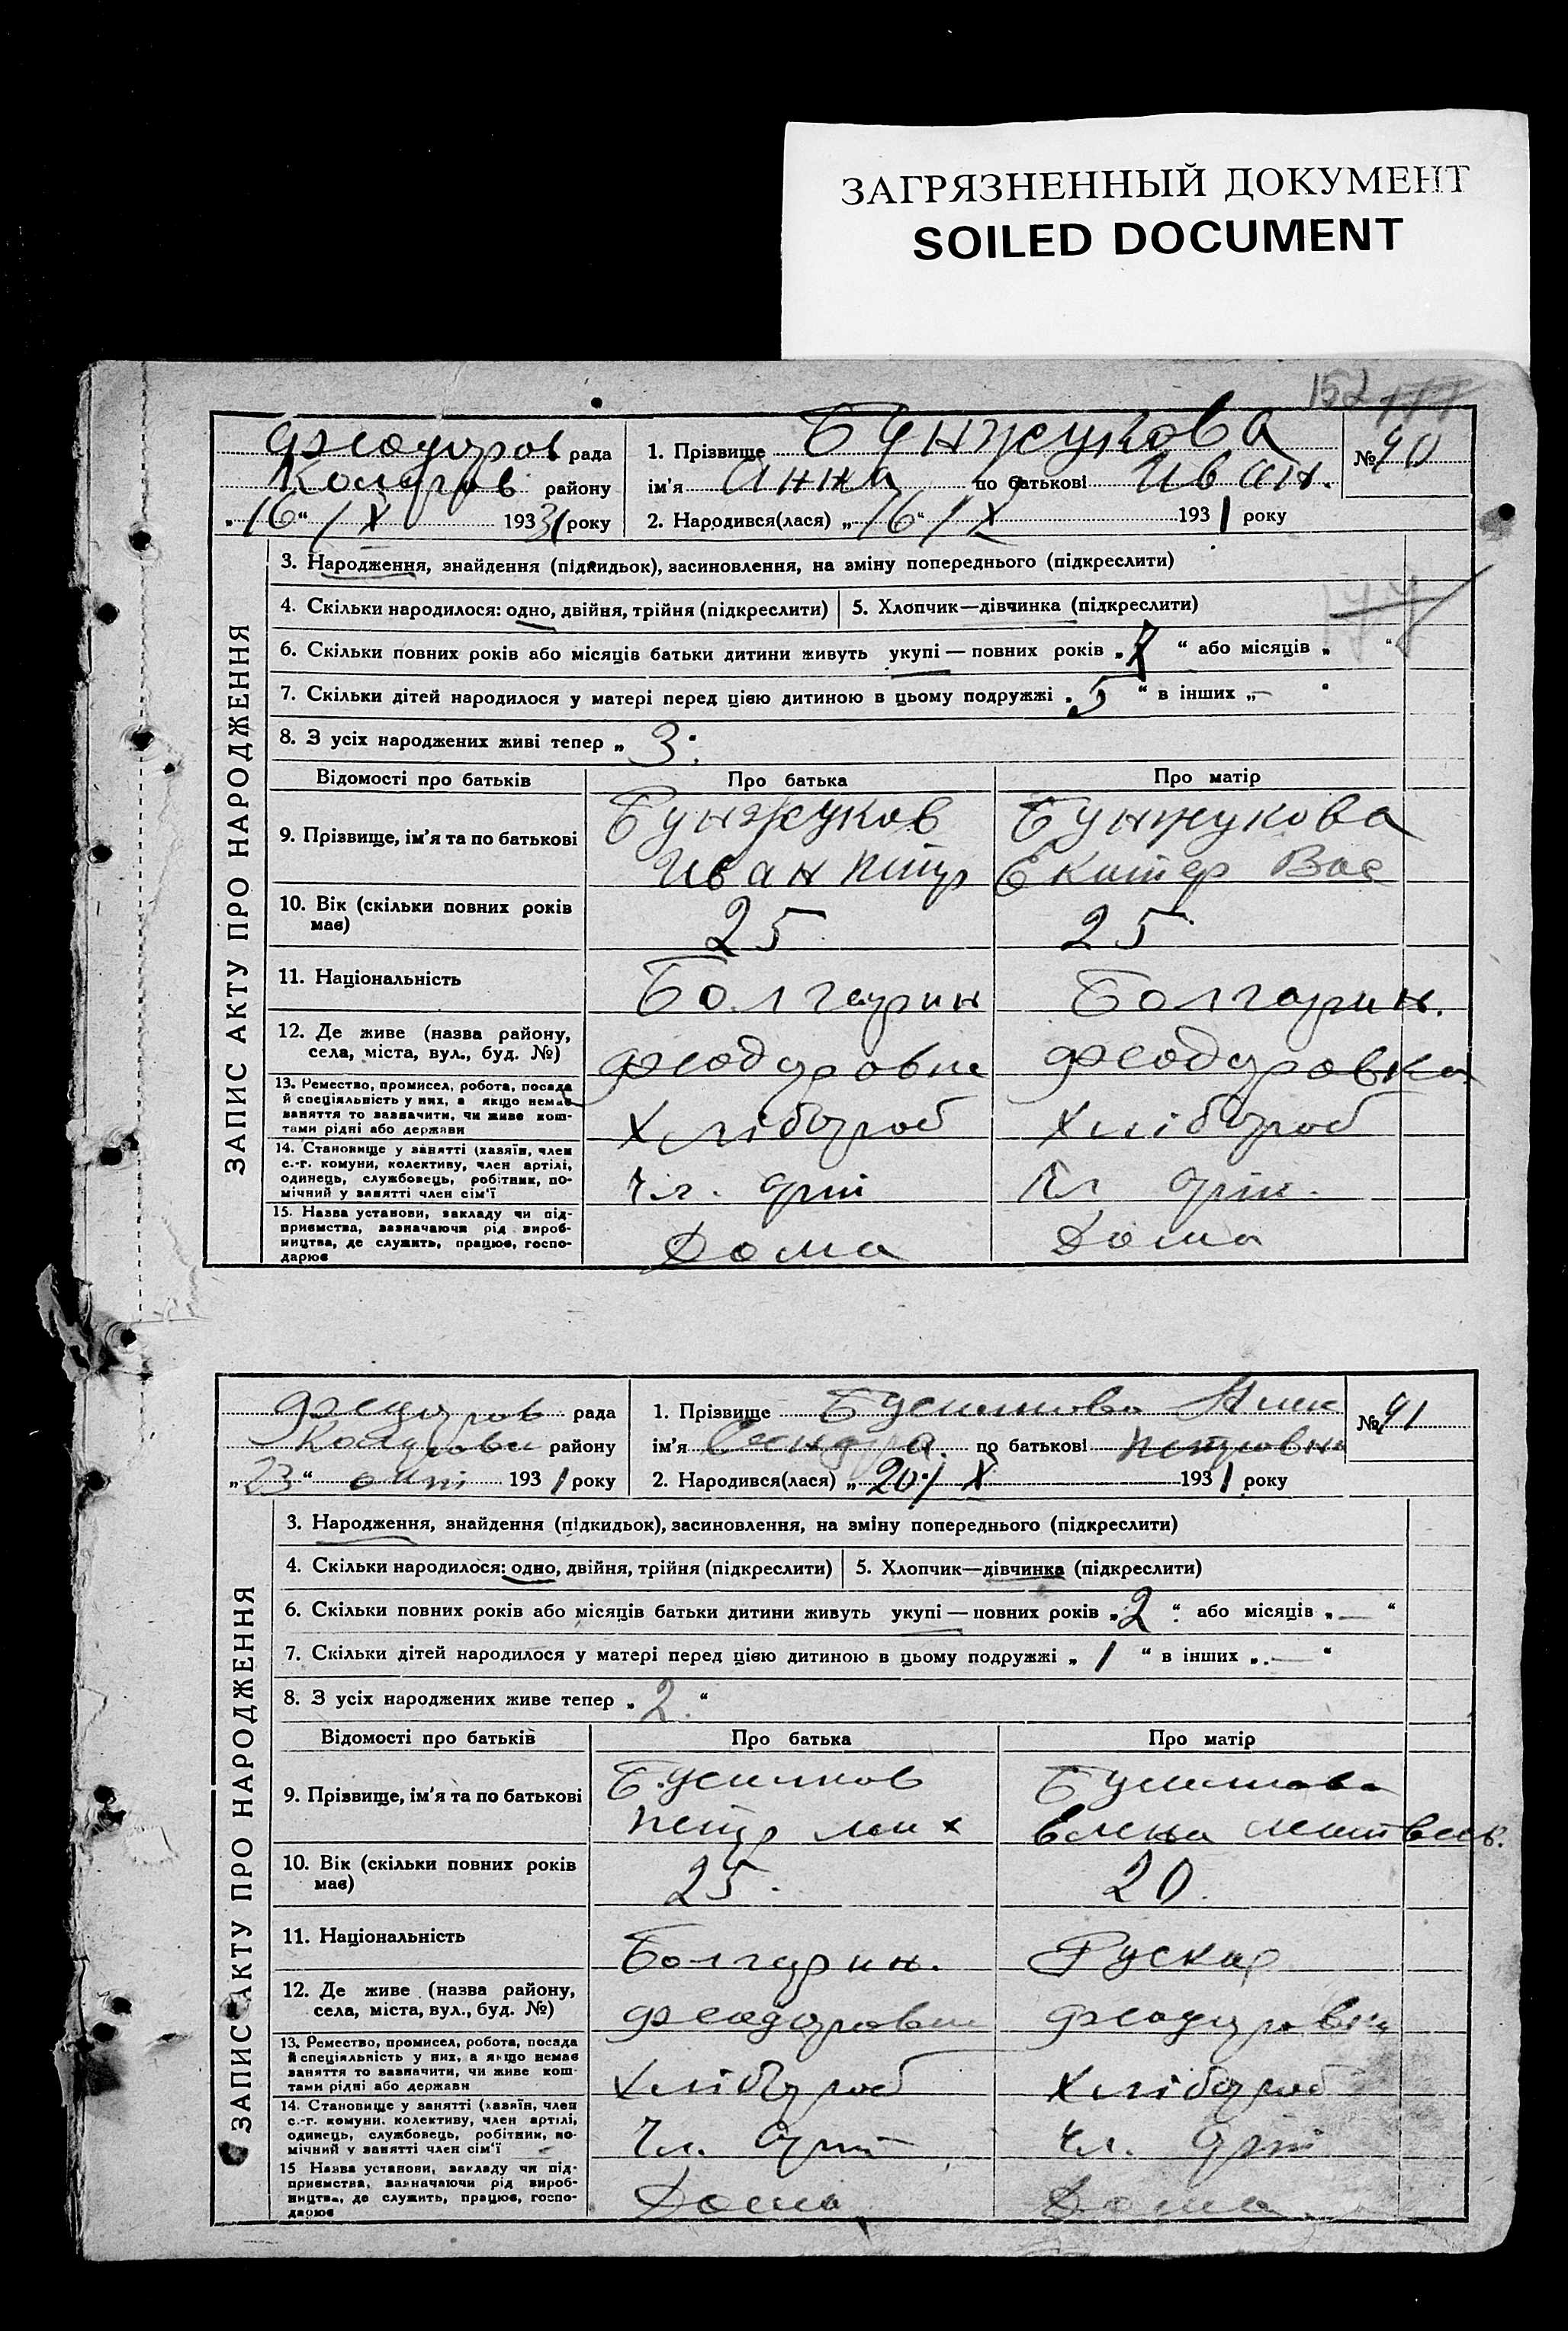 ЗАГРЯЗНЕННЫЙ ДОКУМЕНТ
SOILED DOCUMENT
152 177
Феодоров рада
Коларов району
„16“ / X 1931 року
1. Прізвище Бунжукова
ім'я Анна по батькові Иван.
№ 90
2. Народився(лася) „16“ / X 1931 року
ЗАПИС АКТУ ПРО НАРОДЖЕННЯ
3. Народження, знайдення (підкидьок), засиновлення, на зміну попереднього (підкреслити)
4. Скільки народилося: одно, двійня, трійня (підкреслити) 5. Хлопчик—дівчинка (підкреслити)
177
6. Скільки повних років або місяців батьки дитини живуть укупі — повних років „7“ або місяців „ “
7. Скільки дітей народилося у матері перед цією дитиною в цьому подружжі „5“ в інших „— “
8. З усіх народжених живі тепер „3.
Відомості про батьків Про батька Про матір
9. Прізвище, ім'я та по батькові Бунжуков Бунжукова
Иван Петр Екатер Вас
10. Вік (скільки повних років 25 25
має)
11. Національність Болгарин Болгарин.
12. Де живе (назва району,
села, міста, вул., буд. №) Феодоровка Феодоровка
13. Ремество, промисел, робота, посада
й спеціяльність у них, а якщо немає
заняття то зазначити, чи живе кош-
тами рідні або держави Хлібороб Хлібороб
14. Становище у занятті (хазяїн, член
с.-г. комуни, колективу, член артілі,
одинець, службовець, робітник, по-
мічний у занятті член сім'ї Чл. арт Чл арт.
15. Назва установи, закладу чи під-
приємства, зазначаючи рід вироб-
ництва, де служить, працює, госпо-
дарює Дома Дома
Феодоров рада
Коларовск району
„23“ окт 1931 року
1. Прізвище Алек
ім'я сандра. по батькові Петровна
№ 91
2. Народився(лася) „20“/ X 1931 року
ЗАПИС АКТУ ПРО НАРОДЖЕННЯ
3. Народження, знайдення (підкидьок), засиновлення, на зміну попереднього (підкреслити)
4. Скільки народилося: одно, двійня, трійня (підкреслити) 5. Хлопчик—дівчинка (підкреслити)
6. Скільки повних років або місяців батьки дитини живуть укупі — повних років „2“ або місяців „—“
7. Скільки дітей народилося у матері перед цією дитиною в цьому подружжі „1“ в інших „—“
8. З усіх народжених живе тепер „2.“
Відомості про батьків Про батька Про матір
9. Прізвище, ім'я та по батькові
Петр Мих Елена Матвеев.
10. Вік (скільки повних років 25. 20.
має)
11. Національність Болгарин. Руская
12. Де живе (назва району,
села, міста, вул., буд. №) Феодоровка Феодоровка
13. Ремество, промисел, робота, посада
й спеціяльність у них, а якщо немає
заняття то зазначити, чи живе кош-
тами рідні або держави Хлібороб Хлібороб
14. Становище у занятті (хазяїн, член
с.-г. комуни, колективу, член артілі,
одинець, службовець, робітник, по-
мічний у занятті член сім'ї Чл. арт Чл. арт
15 Назва установи, закладу чи під-
приємства, зазначаючи рід вироб-
ництва, де служить, працює, госпо-
дарює Дома Дома.